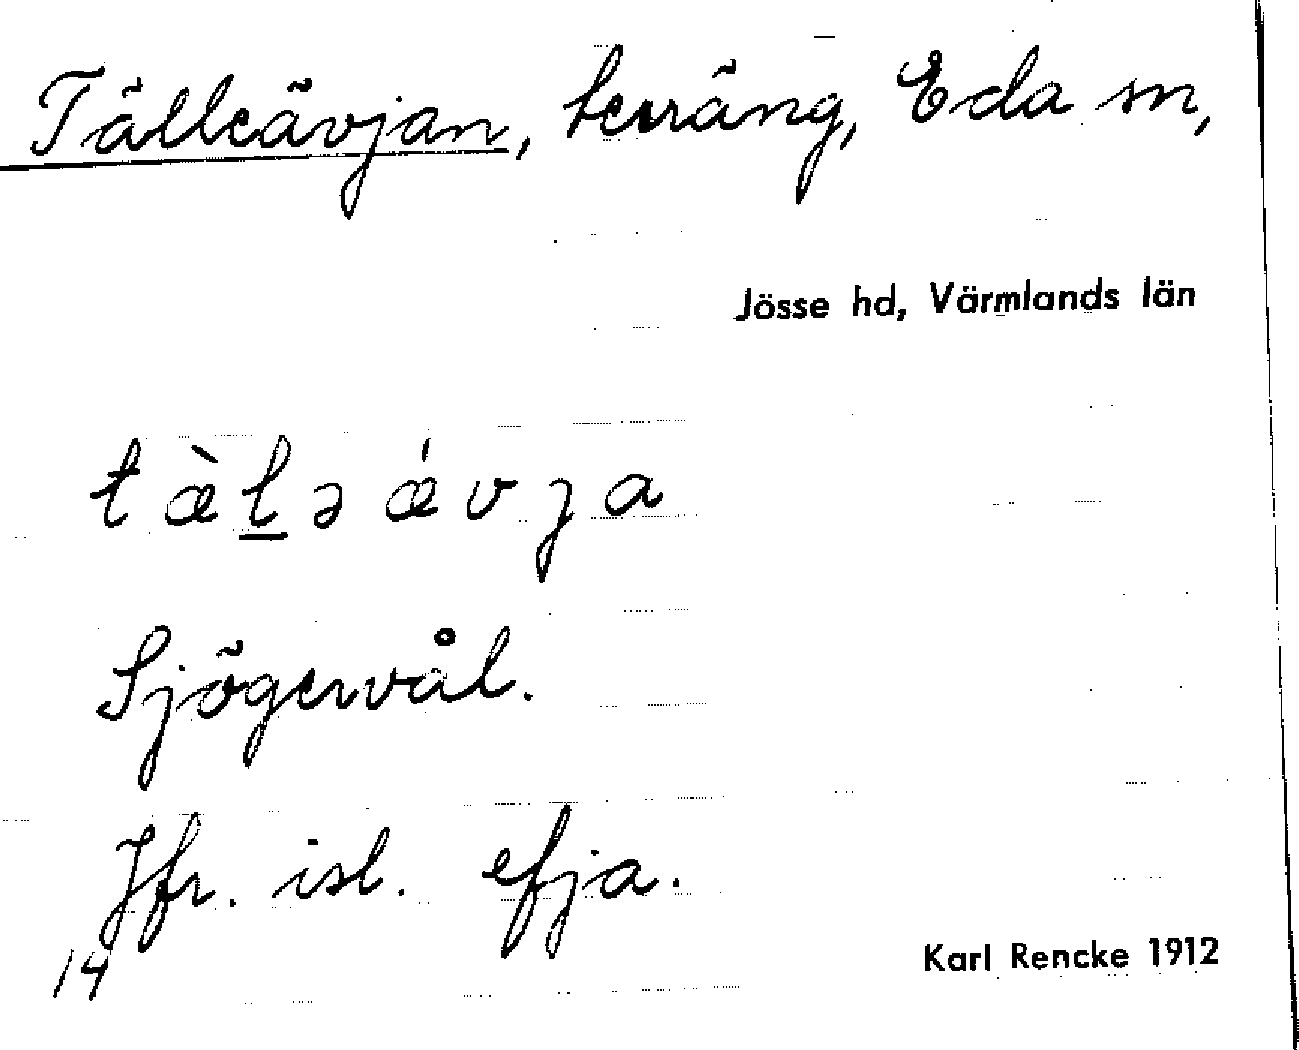 Tälleävjan, terräng, Eda sn,
Jösse hd, Värmlands län
tæ̀lə ǽvja
Sjögervål.
Jfr. isl. efja.
14
Karl Rencke 1912